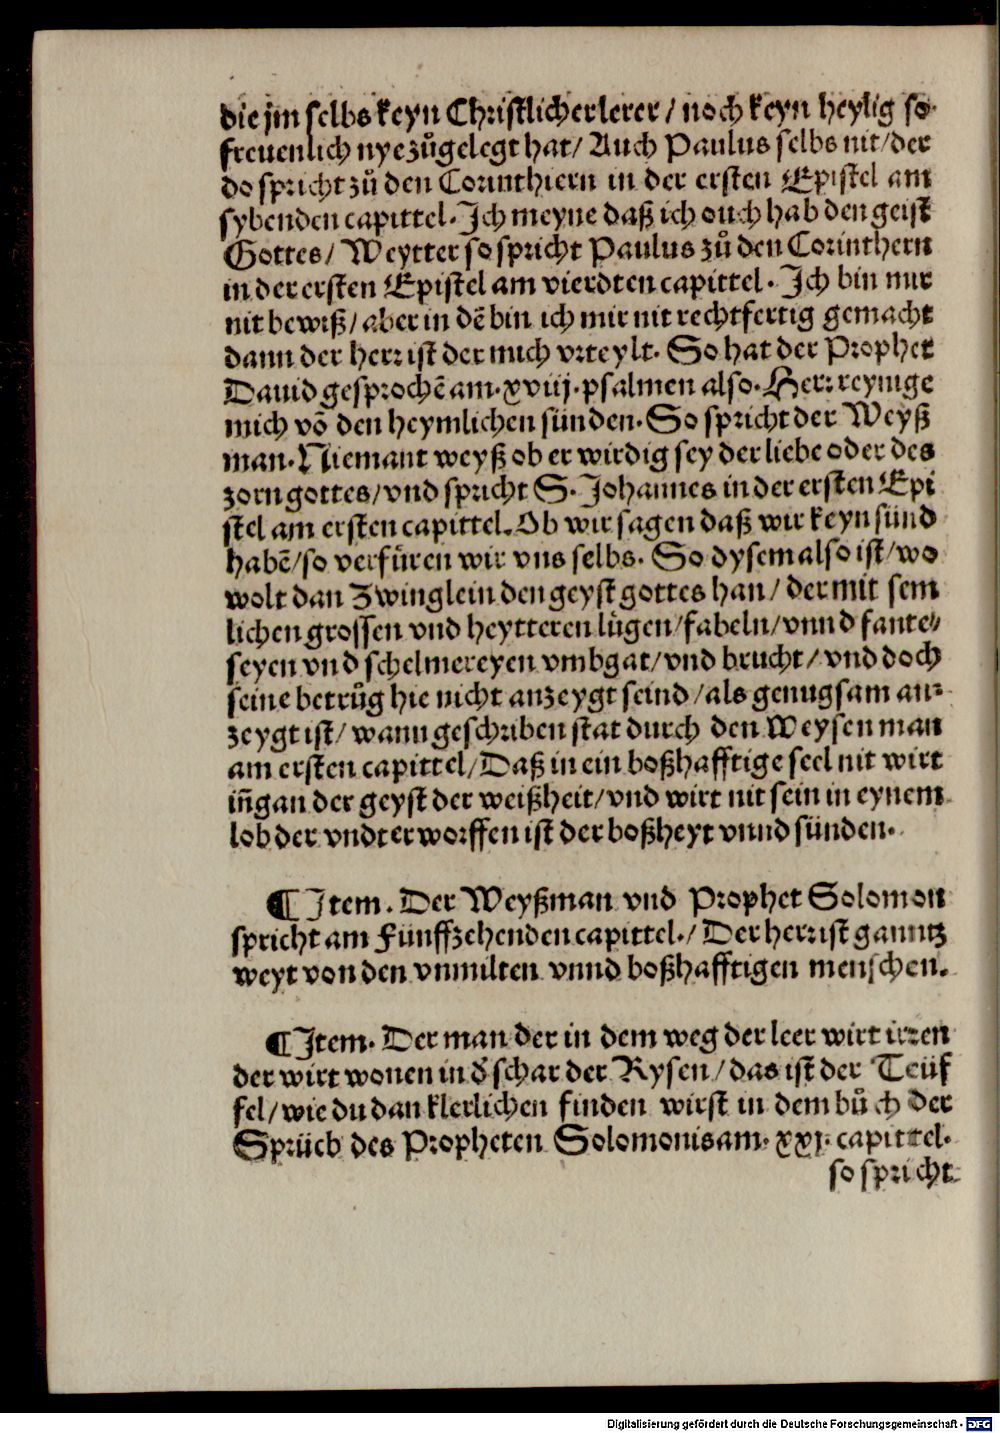 die jm selbs keyn Christlicher lerer / noch keyn heylig so
freuenlich nye zůgelegt hat / Auch Paulus selbs nit / der
do spricht zů den Corinthiern in der ersten Epistel am
sybenden capittel. Ich meyne daß ich ouch hab den geist
Gottes / Weytter so spricht Paulus zů den Corinthern
in der ersten Epistel am vierdten capittel. Ich bin mir
nit bewiß / aber in dē bin ich mir nit rechtfertig gemacht
dann der herr ist der mich vrteylt. So hat der Prophet
Dauid gesprochē am. xviij. psalmen also. Herr reynige
mich vō den heymlichen sünden. So spricht der Weyß
man. Niemant weyß ob er wirdig sey der liebe oder des
zorn gottes / vnd spricht S. Johannes in der ersten Epi
stel am ersten capittel. Ob wir sagen daß wir keyn sünd
habē / so verfüren wir vns selbs. So dysem also ist / wo
wolt dan Zwinglein den geyst gottes han / der mit sem
lichen grossen vnd heytteren lügen / fabeln / vnnd fante⸗
seyen vnd schelmereyen vmbgat / vnd brucht / vnd doch
seine betrůg hie nicht anzeygt seind / als genugsam an⸗
zeygt ist / wann geschriben stat durch den Weysen man
am ersten capittel / Daß in ein boßhafftige seel nit wirt
iñgan der geyst der weißheit / vnd wirt nit sein in eynem
lob der vndterworffen ist der boßheyt vnnd sünden.

¶ Item. Der Weyßman vnd Prophet Solomon
spricht am Fünffzehenden capittel. / Der herr ist ganntz
weyt von den vnmilten vnnd boßhafftigen menschen.

¶ Item. Der man der in dem weg der leer wirt irren
der wirt wonen in d̕ schar der Rysen / das ist der Teüf
fel / wie du dan klerlichen finden wirst in dem bůch der
Sprüch des Propheten Solomonis am. xxj. capittel.
so spricht
Digitalisierung gefördert durch die Deutsche Forschungsgemeinschaft - DFG